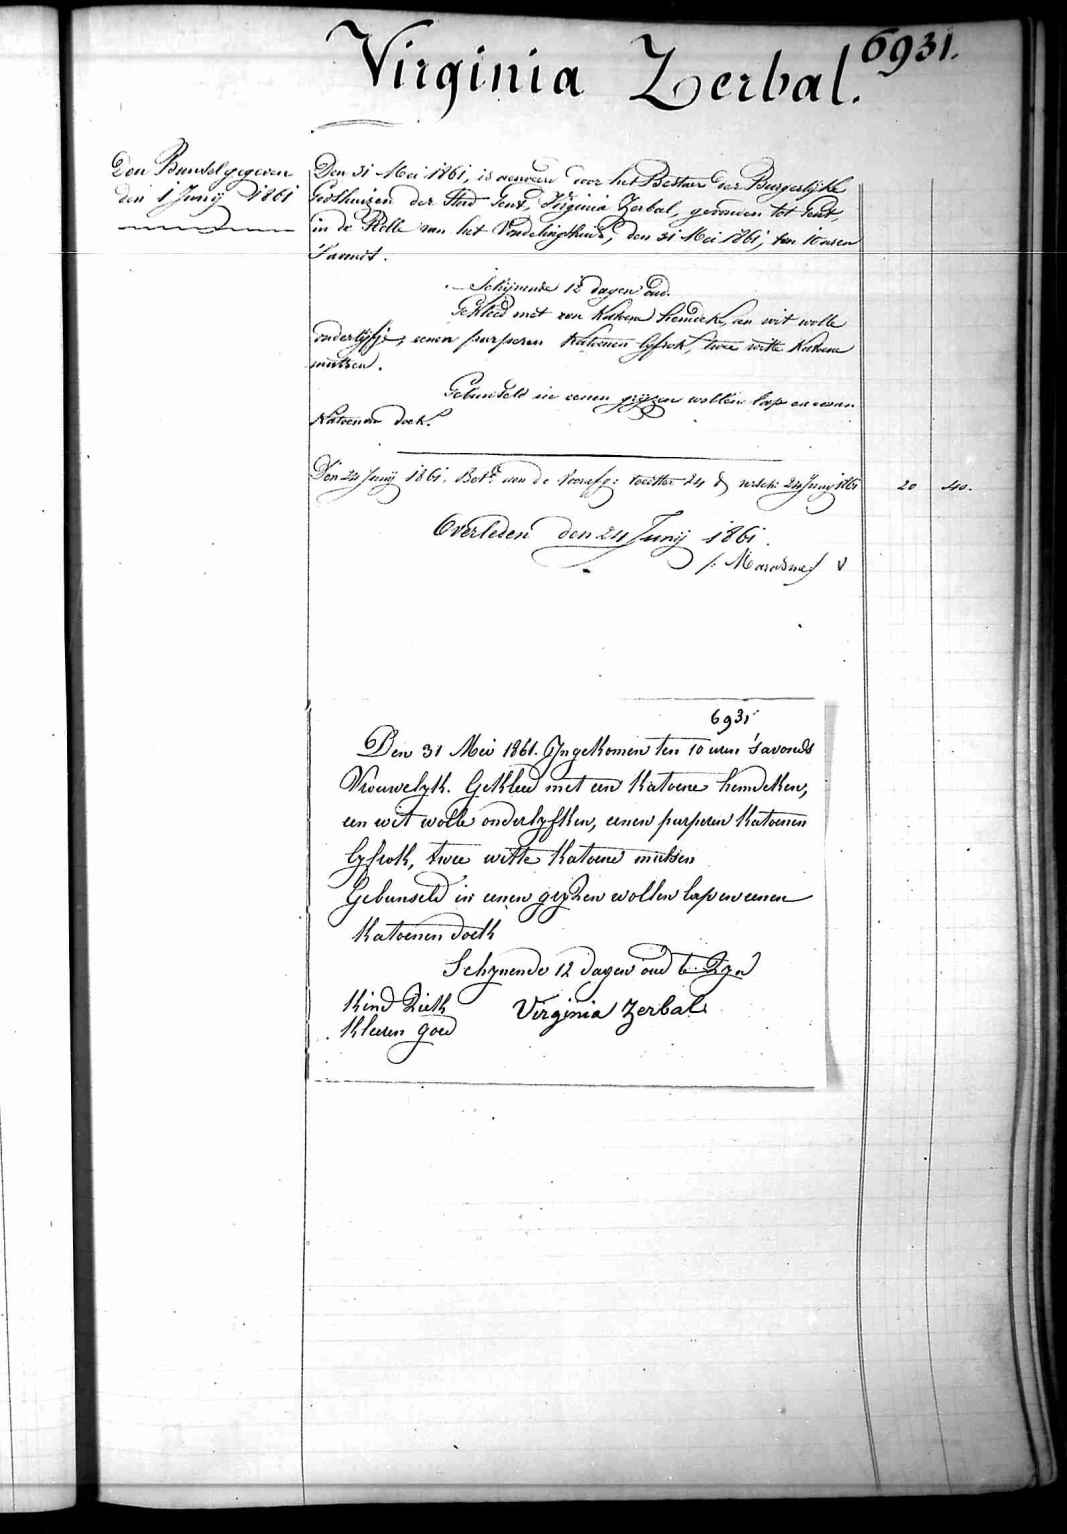 6931.
Virginia Zerbal.
Den Bundel gegeven
den 1 Junij 1861
Den 31 Mei 1861, is aenveerd door het Bestuur der Burgerlijke
Godshuizen der Stad Gent, Virginia Zerbal, gevonden tot Gent,
in de Rolle van het Vondelingshuis, den 31 Mei 1861, ten 10 uren
'savonds.
Schijnende 12 dagen oud.
Gekleed met een Katoene hemdeke, een wit wolle
onderlijfje, eenen purperen Katoenen lyfrok, twee witte Katoene
mutsen.
Gebunseld in eenen gryzen wollen lap en eenen
Katoenen doek.
Den 24 Junij 1861. Bet. aen de 24 24 Junij 1861 20 40.
Overleden den 24 Junij 1861.
6931
Den 31 Mei 1861. Ingekomen ten 10 uren 'savonds
Vrouwelyk. Gekleed met een Katoene hemdeken,
een wit wolle onderlyfken, eenen purperen Katoenen
lyfrok, twee witte Katoene mutsen
Gebunseld in eenen gryzen wollen lap en eenen
Katoenen doek
Schynende 12 dagen oud te Zyn
Kind Ziek Virginia Zerbal
Kleeren goed